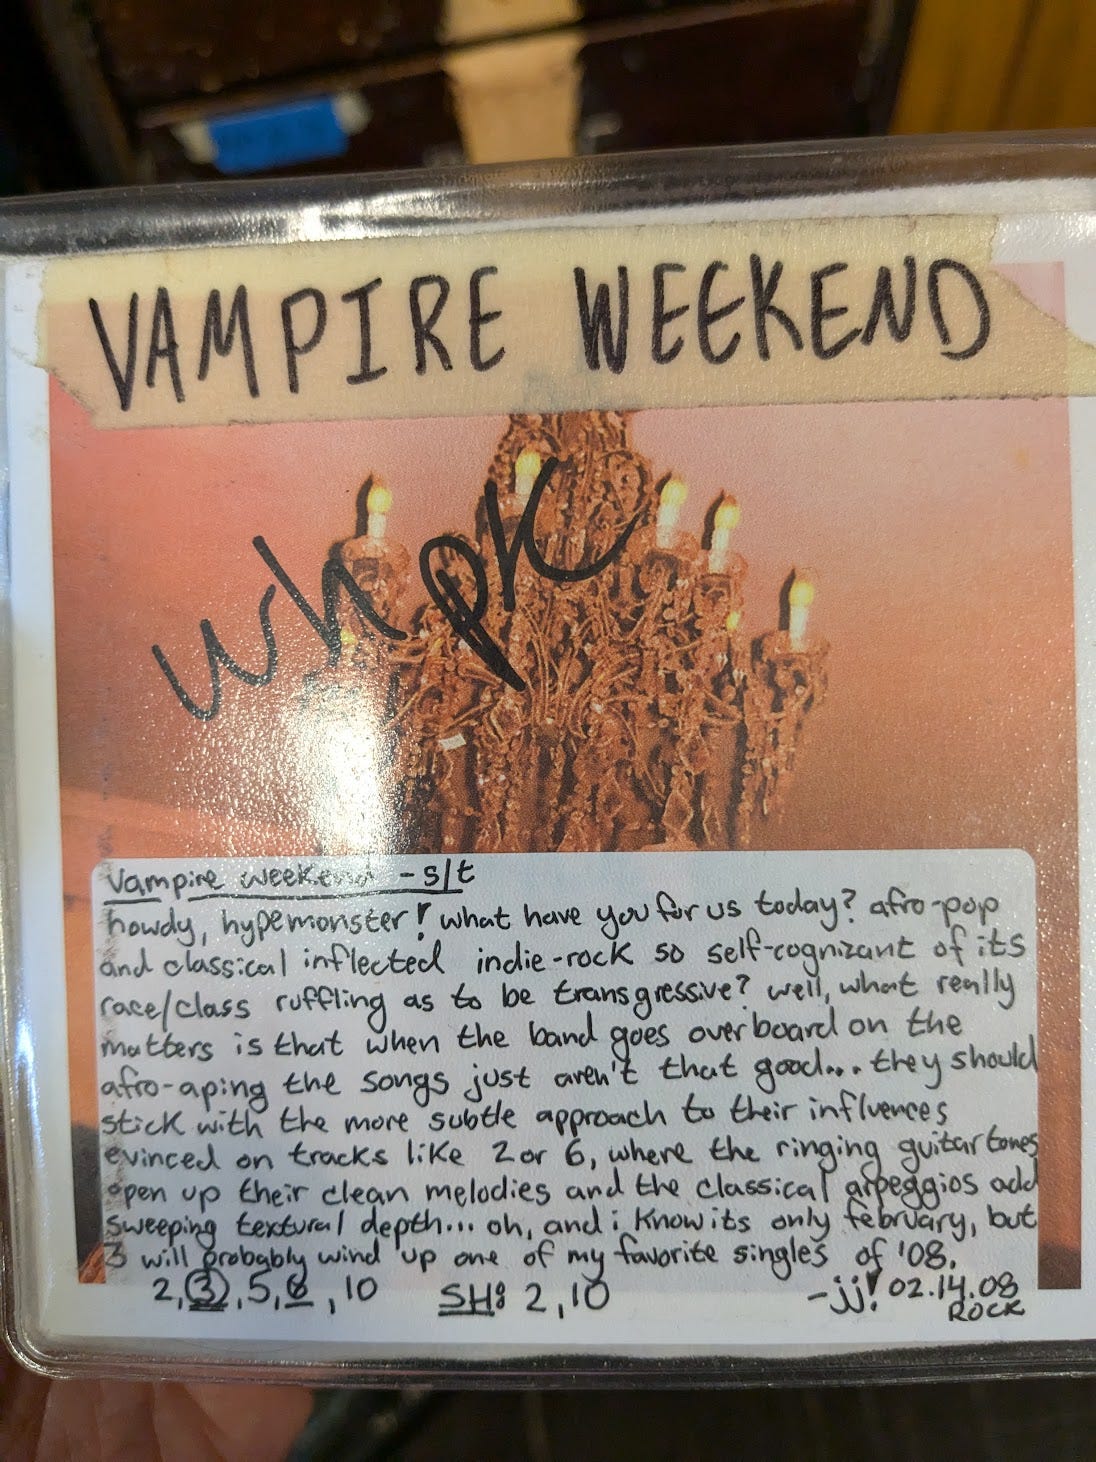 VAMPIRE WEEKEND
whpk
Vampire weekend - s/t
howdy, hypemonster! what have you for us today? afro-pop
and classical inflected indie-rock so self-cognizant of its
race/class ruffling as to be transgressive? well, what really
matters is that when the band goes overboard on the
afro-aping the songs just aren't that good... they should
stick with the more subtle approach to their influences
evinced on tracks like 2 or 6, where the ringing guitar tones
open up their clean melodies and the classical arpeggios add
sweeping textural depth... oh, and i know its only february, but
3 will probably wind up one of my favorite singles of '08.
2, 3, 5, 6, 10 SH: 2, 10 -jj! 02.14.08
ROCK